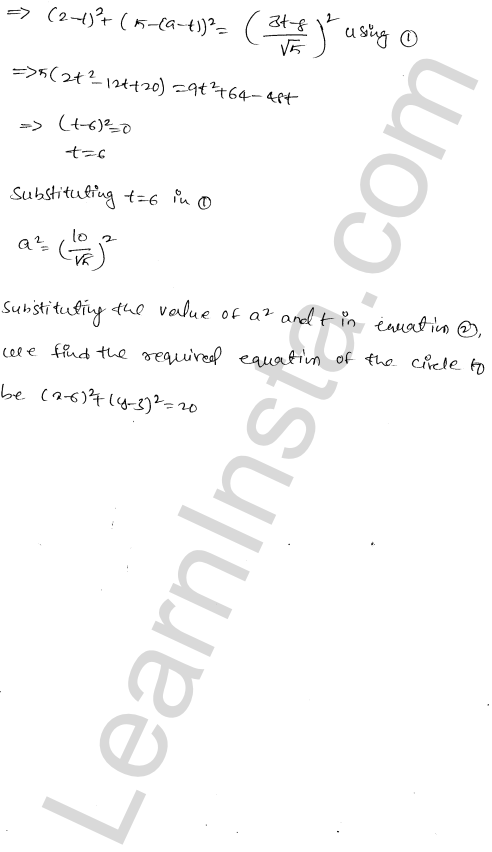 ⇒ (2-t)²+(5-(9-t))² = (3t-8/√5)² using ①
⇒5(2t²-12t+20) = 9t²+64-48t
⇒ (t-6)²=0
t=6
Substituting t=6 in ①
a² = (10/√5)²
Substituting the value of a² and t in equation ②,
we find the required equation of the circle to
be (x-6)²+(y-3)²=20
LearnInsta.com